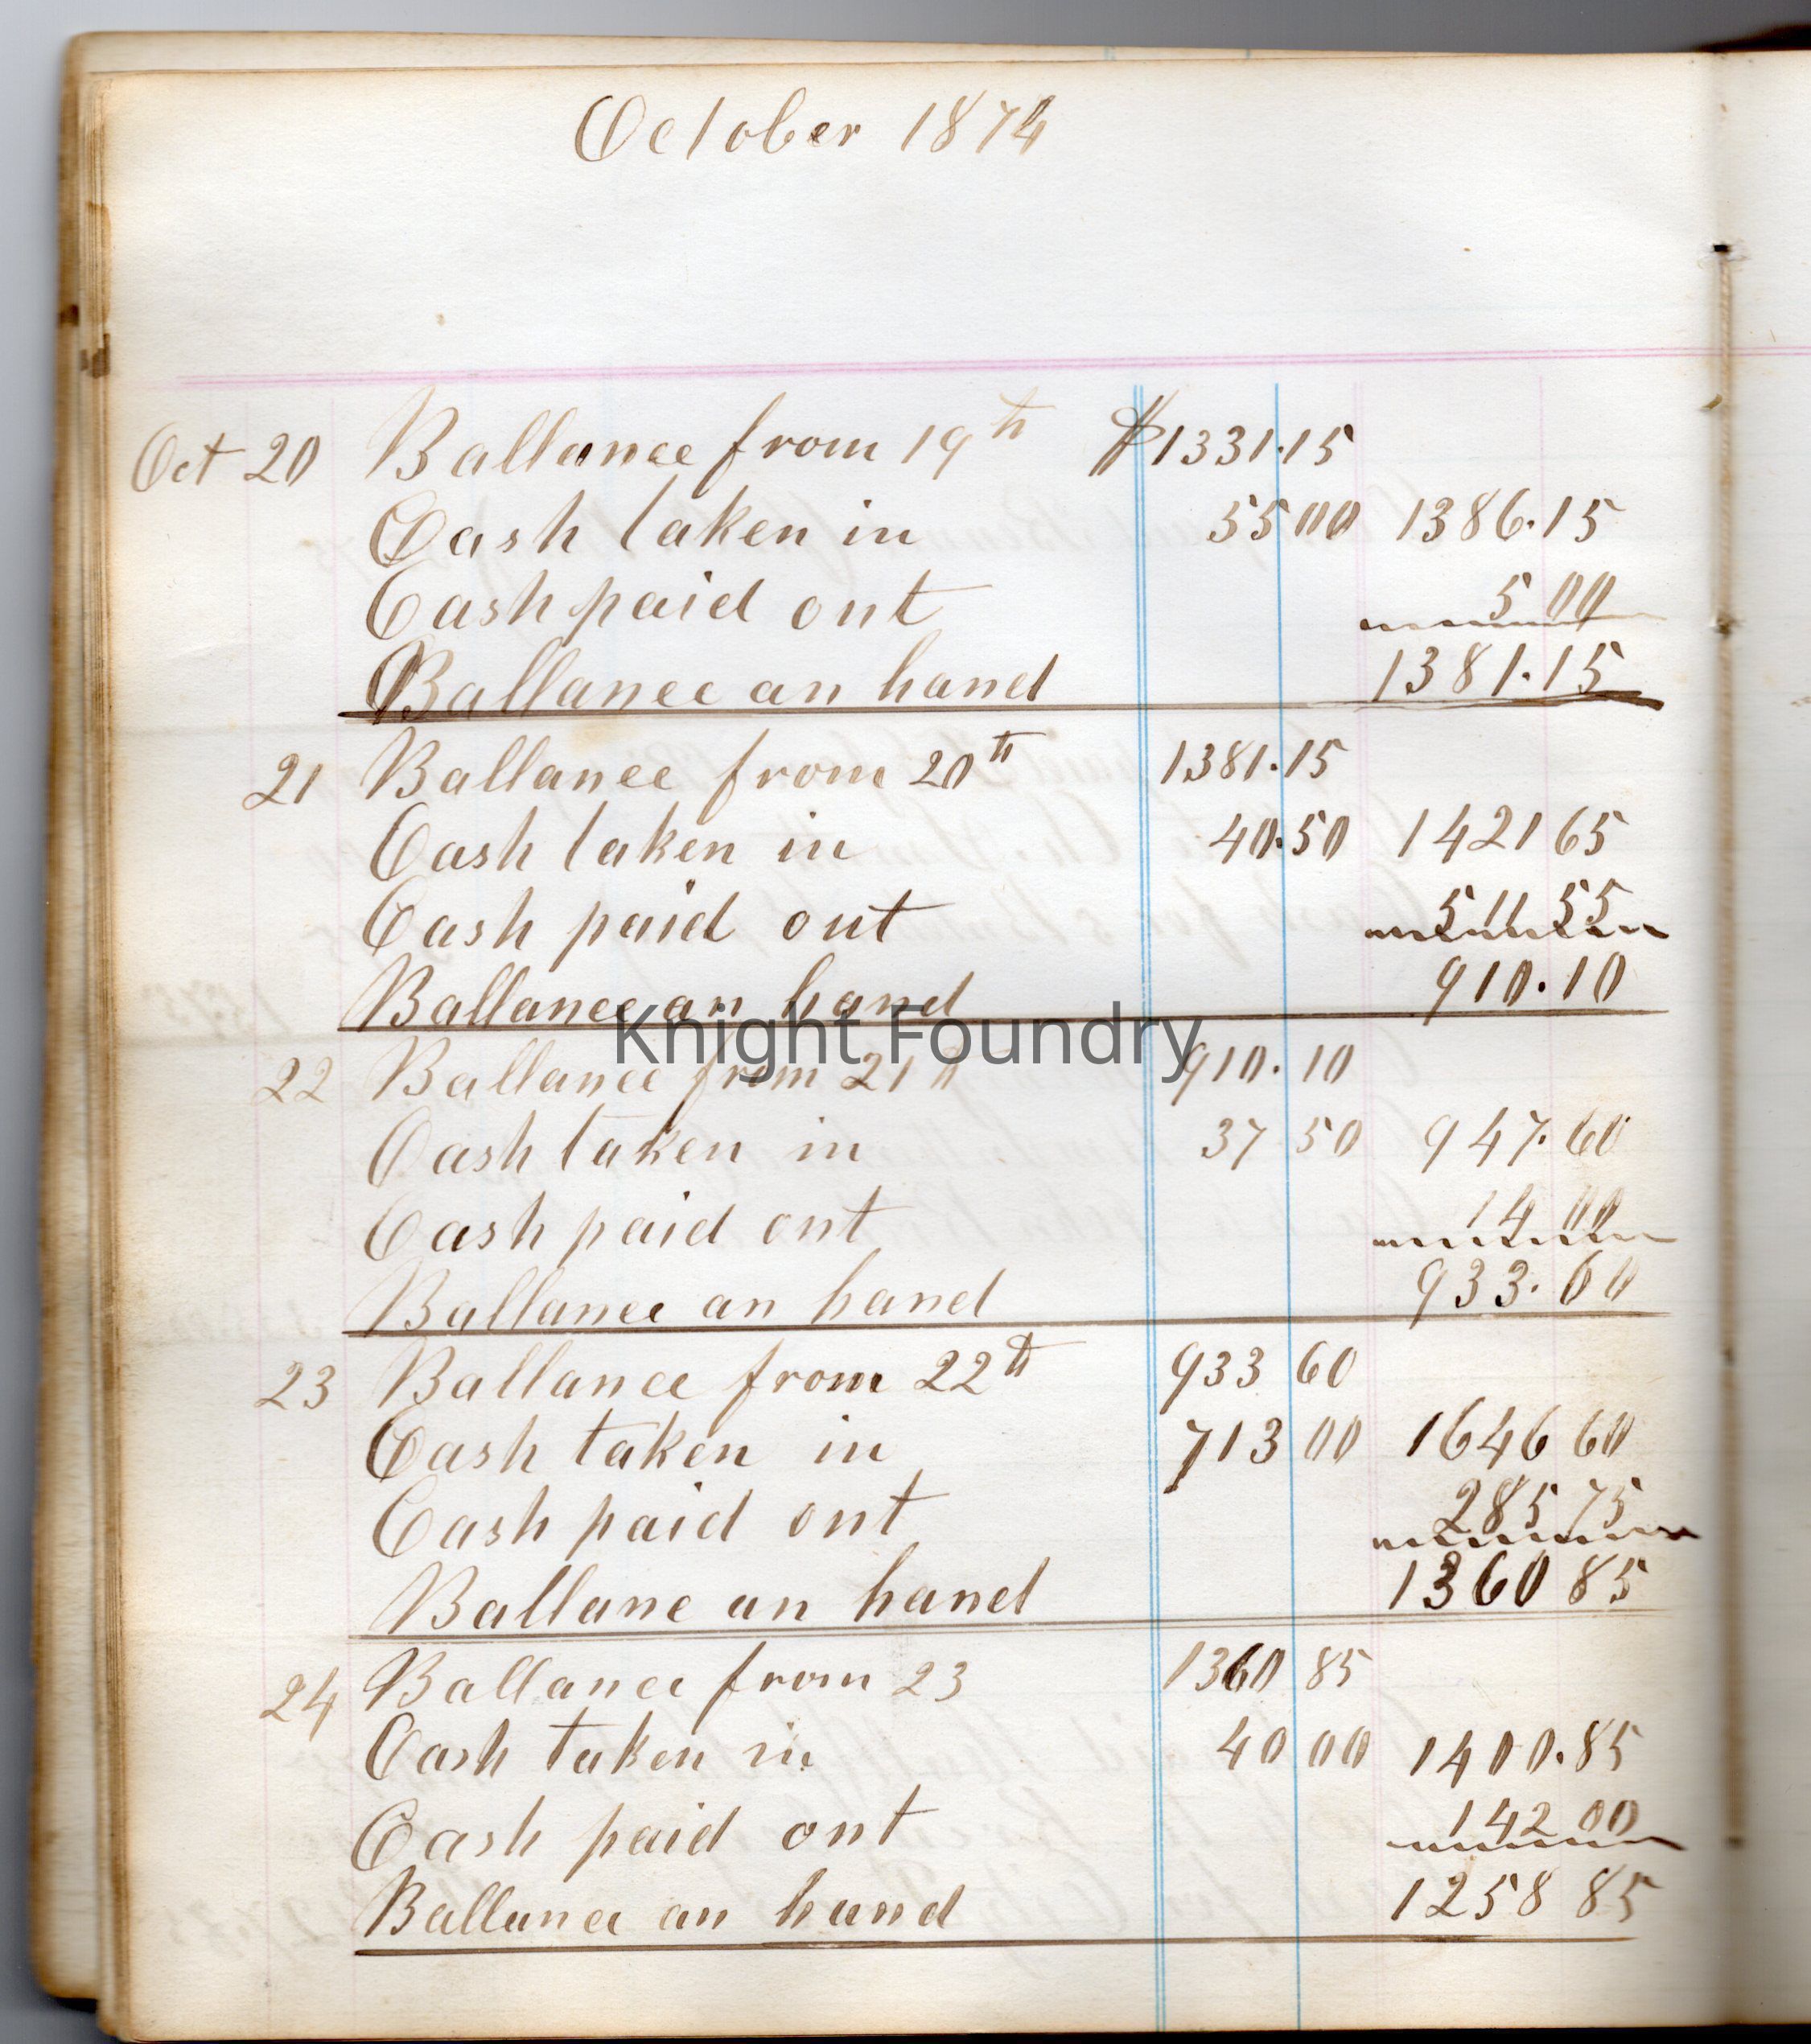 October 1874
Oct 20 Ballance from 19th $1331.15
Cash taken in 55 00 1386.15
Cash paid out 5 00
Ballance an hand 1381.15
21 Ballance from 20th 1381.15
Cash taken in 40.50 1421 65
Cash paid out 511 55
Ballance an hand 910.10
Knight Foundry
22 Ballance from 21th 910.10
Cash taken in 37 50 947.60
Cash paid out 14 00
Ballance an hand 933.60
23 Ballance from 22th 933 60
Cash taken in 713 00 1646 60
Cash paid out 285 75
Ballane an hand 1360 85
24 Ballance from 23 1360 85
Cash taken in 40 00 1400.85
Cash paid out 142 00
Ballance an hand 1258 85